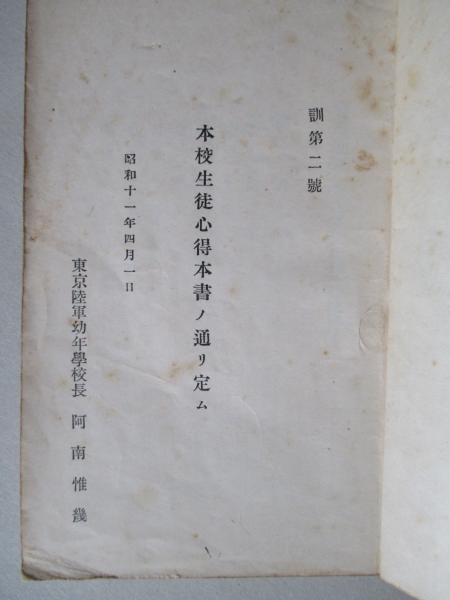 訓第二號
本校生徒心得本書ノ通リ定ム
昭和十一年四月一日
東京陸軍幼年學校長 阿南惟幾